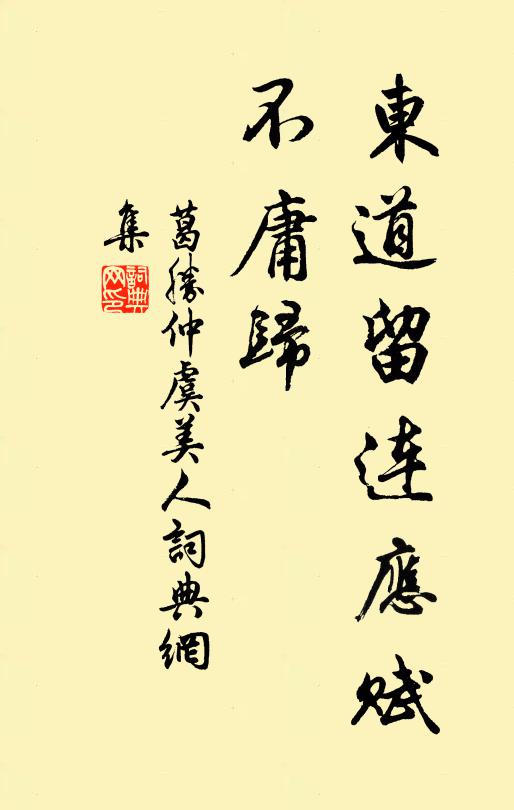 東道留連應賦
不庸歸
葛勝仲虞美人詞典網
集
詞典網印